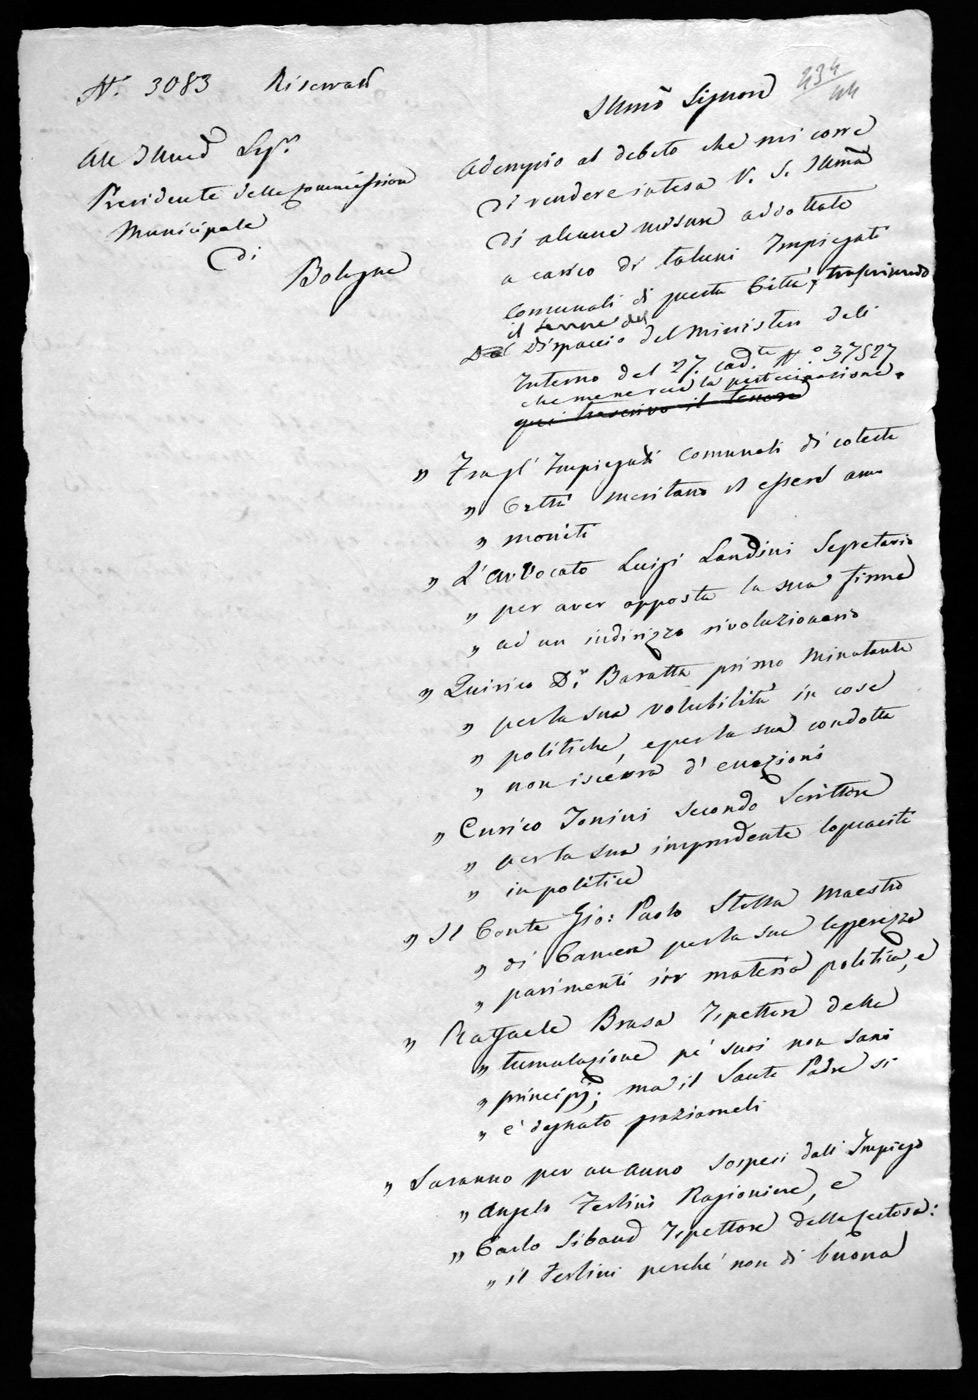 N.° 3083 Riservata
All Illmo Sigr.
Presidente della Commissione
Municipale
di
Bologna
434
44
Illmo Signore
Adempio al debito che mi corre
di rendere intesa V. S. Illma
di alcune misure addottate
a carico di taluni Impiegati
Comunali di questa Città, trascrivendo
il tenore del
Dal Dispaccio del Ministero dell
Interno del 27. cad.te N.° 37527
che me ne reca la partecipazione.
qui trascrivo il tenore
" Fragl' Impiegati Comunali di coteste
" Città meritano d essere am
" moniti
" L'avvocato Luigi Landini Segretario
" per aver apposta la sua firma
" ad un indirizzo rivoluzionario
" Quirico D.r Baratta primo Minutante
" per la sua volubilità in cose
" politiche, e per la sua condotta
" non iscevra d' eccezioni
" Enrico Tonini secondo Scrittore
" per la sua imprudente loquacità
" in politica
" Il Conte Gio: Paolo Stella Maestro
" di Camera per la sua leggerezza
" parimenti in materia politica, e
" Raffaele Brasa Ispettore della
" tumulazione pe' suoi non sani
" principj; ma il Santo Padre si
" è degnato graziarneli
" Saranno per un anno sospesi dall Impiego
" Angelo Ferlini Ragioniere, e
" Carlo Sibaud Ispettore della Certosa:
" il Ferlini perché non di buona